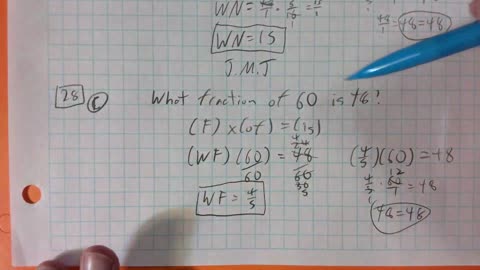 WN = 48/1 · 5/16 = 15/1
48/1 = 48 = 48
WN = 15
J.M.J
28 C What fraction of 60 is 48?
(F) x (of) = (is)
(WF)(60) = 48
60 60
WF = 4/5
(4/5)(60) = 48
4/5 · 60/1 = 48
12
48 = 48